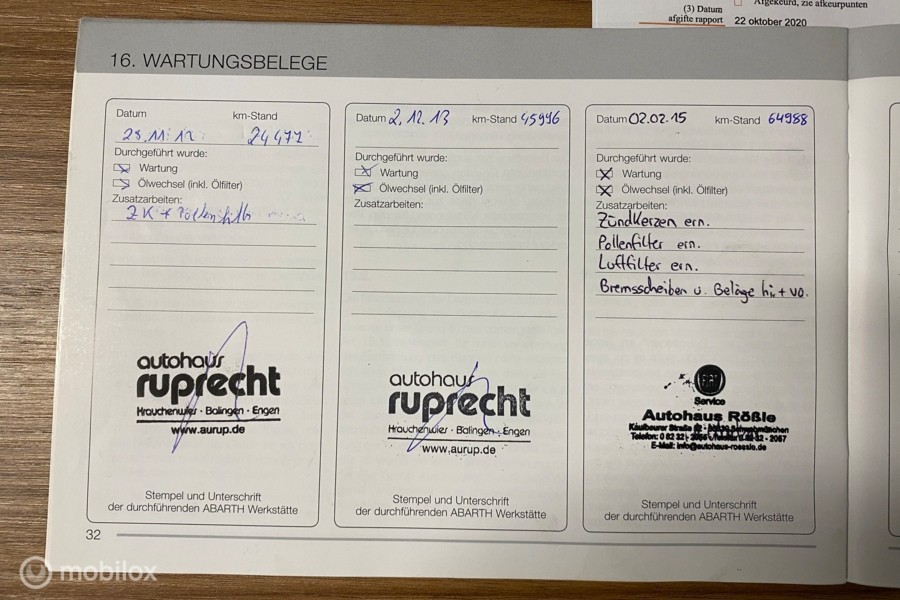 (3) Datum
afgifte rapport
Afgekeurd, zie afkeurpunten
22 oktober 2020
16. WARTUNGSBELEGE
Datum km-Stand
11. 12 24477
Durchgeführt wurde:
Wartung
Ölwechsel (inkl. Ölfilter)
Zusatzarbeiten:
ZK +
autohaus
ruprecht
Krauchenwies · Balingen · Engen
www.aurup.de
Stempel und Unterschrift
der durchführenden ABARTH Werkstätte
Datum 2.12.13 km-Stand 45996
Durchgeführt wurde:
Wartung
Ölwechsel (inkl. Ölfilter)
Zusatzarbeiten:
autohaus
ruprecht
Krauchenwies · Balingen · Engen
www.aurup.de
Stempel und Unterschrift
der durchführenden ABARTH Werkstätte
Datum 02.02.15 km-Stand 64988
Durchgeführt wurde:
Wartung
Ölwechsel (inkl. Ölfilter)
Zusatzarbeiten:
Zündkerzen ern.
Pollenfilter ern.
Luftfilter ern.
Bremsscheiben u. Beläge hi. + vo.
FIAT
Service
Autohaus Rößle
Kaufbeurer Straße
Telefon: 0 82 32 -
E-Mail: info@autohaus-roessle.de
Stempel und Unterschrift
der durchführenden ABARTH Werkstätte
32
mobilox